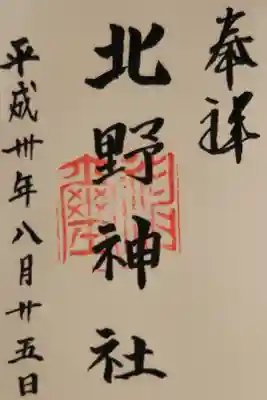 奉祥
北野神社
平成卅年八月廿五日